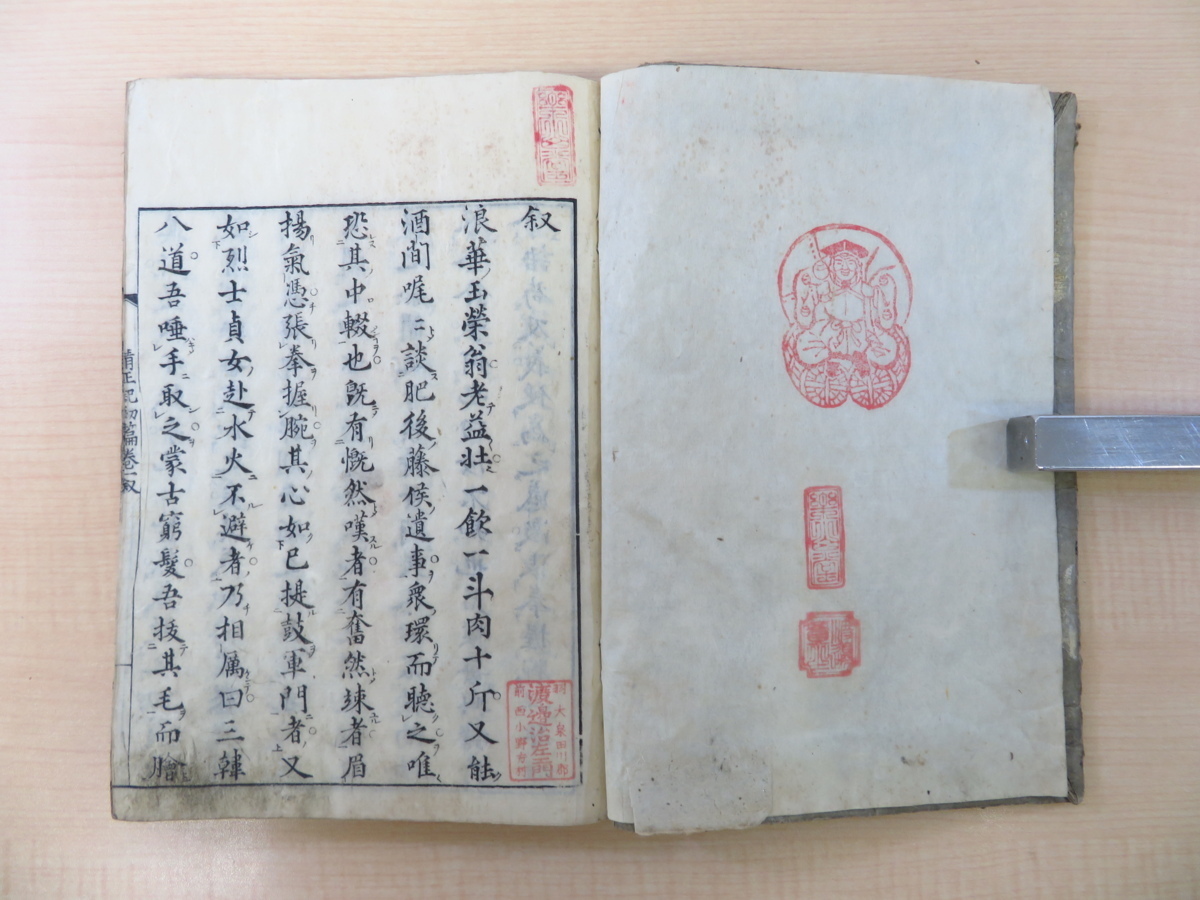 叙
浪華玉榮翁老益壮一飲一斗肉十斤又能
酒間娓々談肥後藤侯遺事衆環而聴之唯
恐其中輟也既有慨然嘆者有奮然竦者眉
揚氣憑張拳握腕其心如已提鼓軍門者又
如烈士貞女赴水火不避者乃相属曰三韓
八道吾唾手取之蒙古窮髪吾抜其毛而膾
清正記初篇巻一叙
渡邊治左衛門